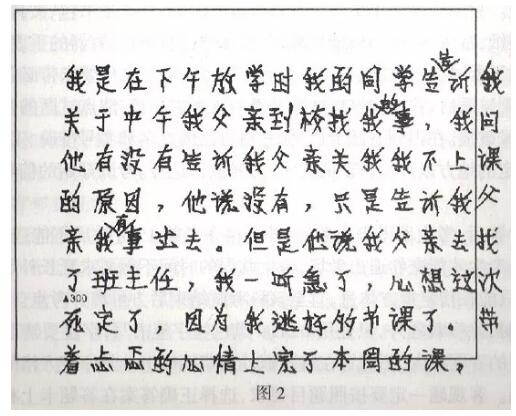 我是在下午放学时我的同学告诉我
关于中午我父亲到校找我故事,我问
他有没有告诉我父亲关我我不上课
的原因,他说没有,只是告诉我父
亲我有事出去,但是他说我父亲去找
了班主任,我一听急了,心想这次
A300
死定了,因为我逃好的节课了,带
着忐忑的心情 本周的课。
图2